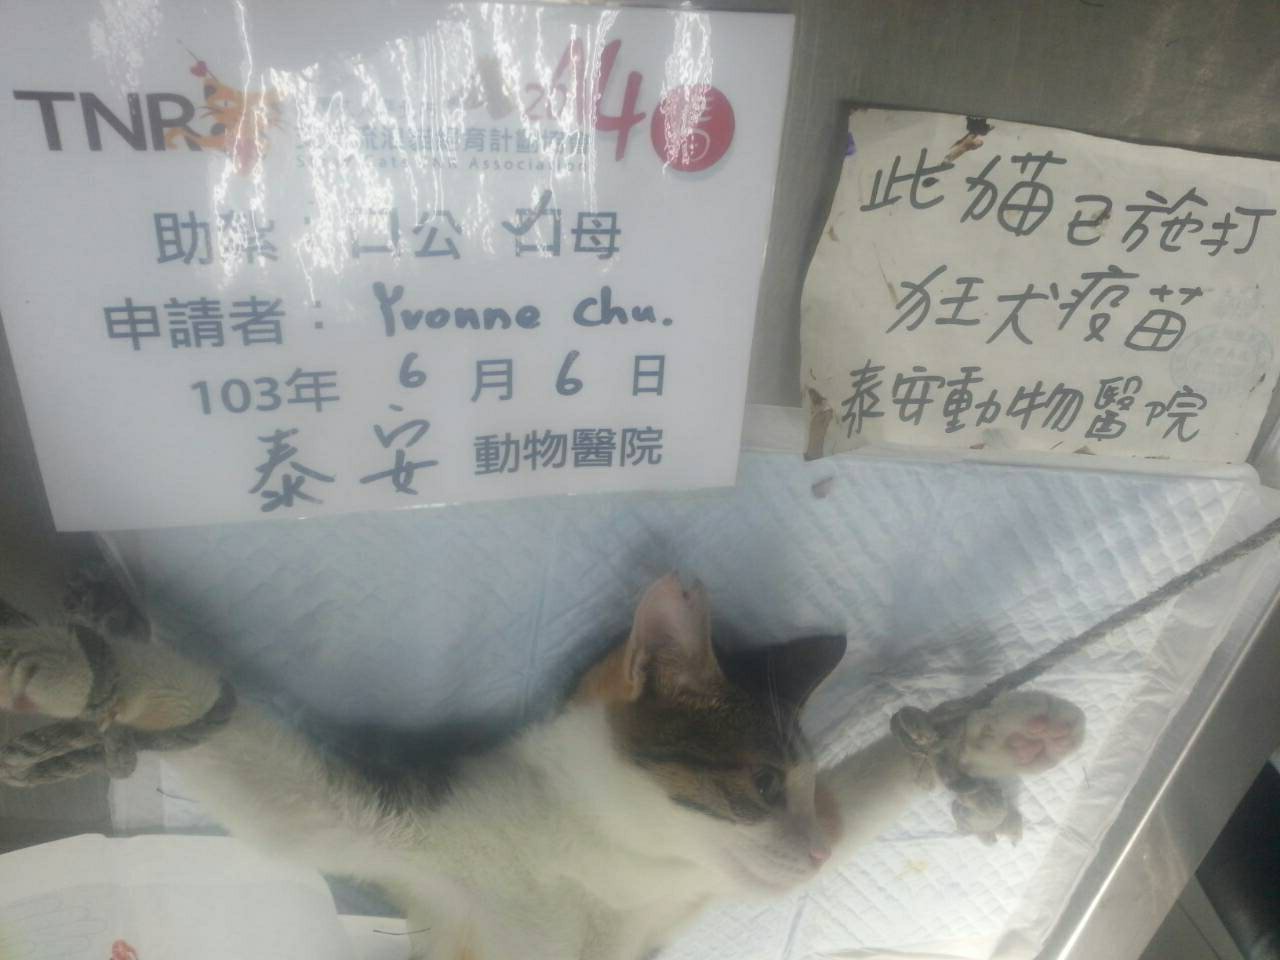 TNR 2014 春
流浪貓絕育計劃協會
Stray Cats TNR Association
助紮：口公 口母
申請者： Yvonne Chu.
103年 6 月 6 日
泰安 動物醫院
此猫已施打
狂犬疫苗
泰安動物醫院